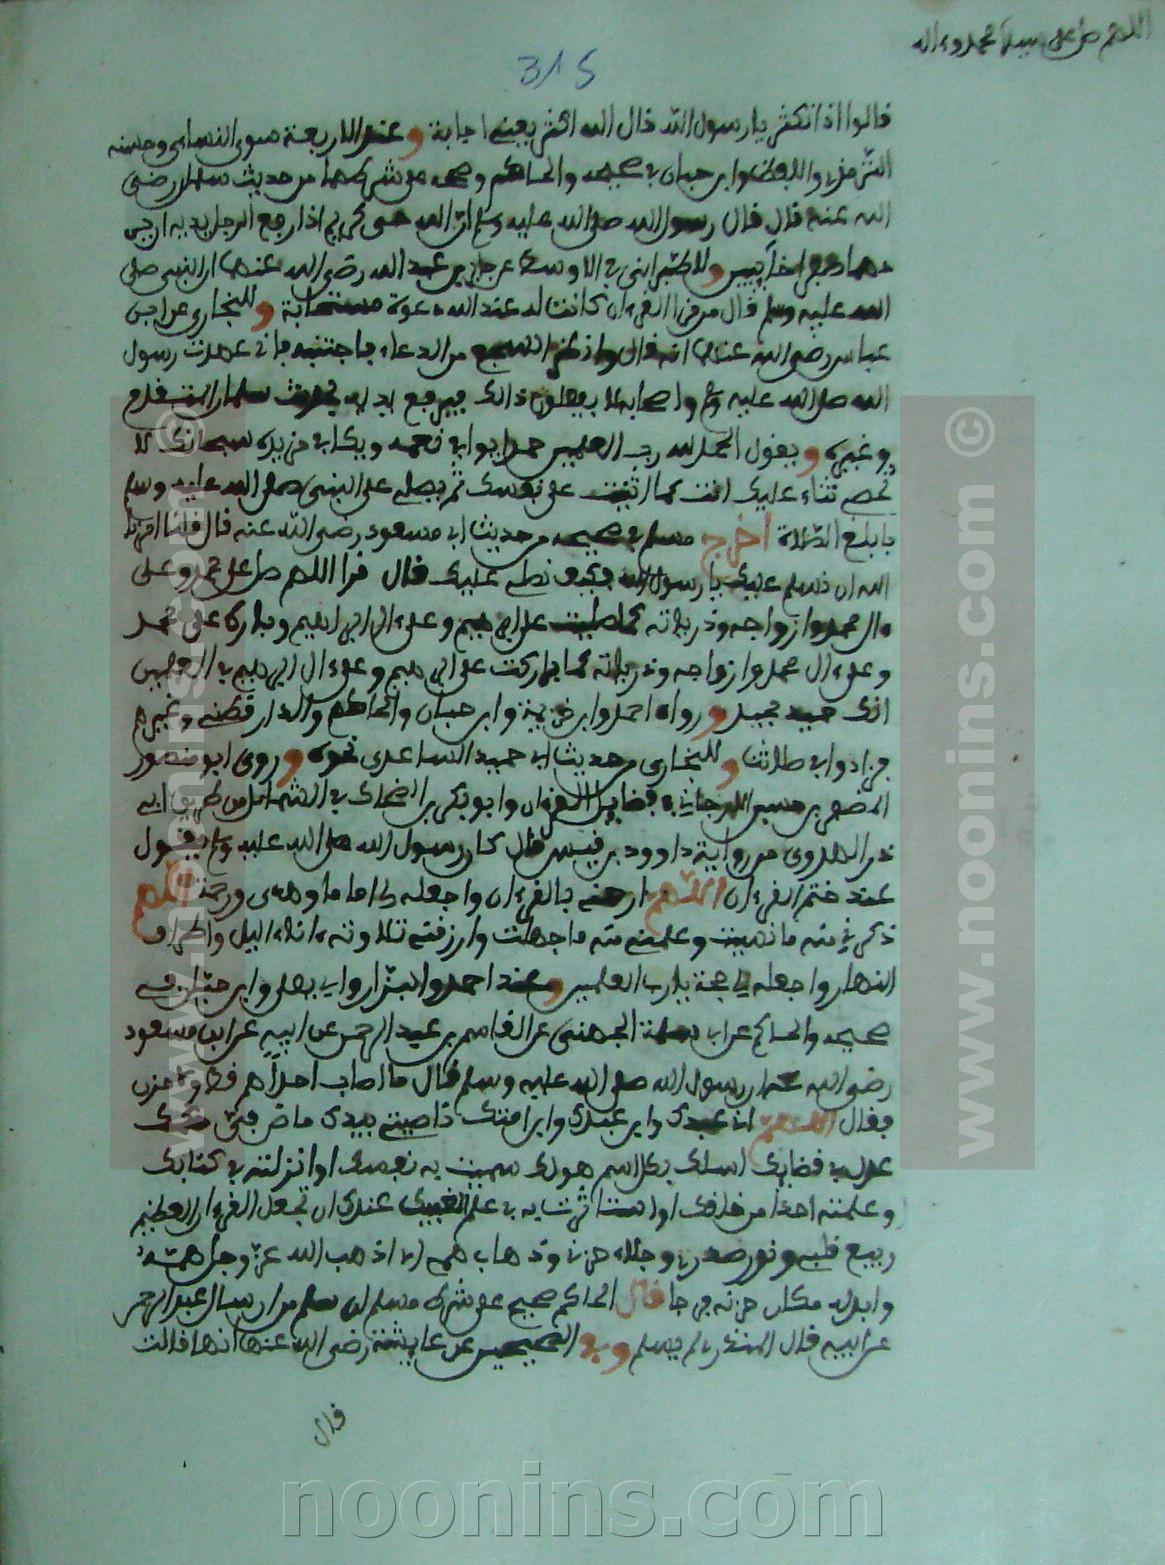 اللهم صل على سيدنا محمد وءاله
315
قالوا اذا نكثر يا رسول الله قال الله اكثر يعني اجابة وعند الاربعة سوى النساءي وحسنه
الترمذي واللفظ له وابن حبان في صحيحه والحاكم وصححه على شرطهما من حديث سلمان رضي
الله عنه قال قال رسول الله صلى الله عليه وسلم ان الله حي كريم اذا رفع الرجل يديه ان يـ
ـدهما صفرا خآيبيين وللطبراني في الاوسط عن جابر بن عبد الله رضي الله عنهما ان النبي صلى
الله عليه وسلم قال من قرا القرءان كانت له عند الله دعوة مستجابة وللبخاري عن ابن
عباس رضي الله عنهما انه قال وانظر السجع من الدعاء فاجتنبه فاني عهدت رسول
الله صلى الله عليه وسلم واصحابه لا يفعلون ذالك فيرفع يديه لحديث سلمان المتقدم
وغيره ويقول الحمد لله رب العلمين حمدا يوافي نعمه ويكافي مزيده سبحانك لا
نحصي ثناء عليك انت كما اثنيت على نفسك ثم يصلي على النبي صلى الله عليه وسلم
بابلغ الصلاة اخرج مسلم في صحيحه من حديث ابي مسعود رضي الله عنه قال قلنا امرنا
الله ان نسلم عليك يا رسول الله فكيف نصلي عليك قال قولوا اللهم صل على محمد وعلى
ءال محمد وازواجه وذرياته كما صليت على ابرهيم وعلى ءال ابراهيم وبارك على محمد
وعلى ءال محمد وازواجه وذرياته كما باركت على ابرهيم وعلى ءال ابرهيم في العلمين
انك حميد مجيد ورواه احمد وابن خزيمة وابن حبان والحاكم والدارقطني وغيرهم
وللبخاري من حديث ابي حميد الساعدي نحوه وروى ابو منصور
المظفر بن الحسين الارجاني في فضايل القرءان وابو بكر بن الضحاك في الشمايل من طريق ابي
ذر الهروي من رواية داوود بن قيس قال كان رسول الله صلى الله عليه وسلم يقول
عند ختم القرءان اللهم ارحمني بالقرءان واجعله لي اماما وهدى ورحمة اللهم
ذكرني منه ما نسيت وعلمني منه ما جهلت وارزقني تلاوته ءاناء اليل واطراف
النهار واجعله لي حجة يا رب العلمين وعند احمد والبزار وابي يعلى وابن حبان في
صحيحه والحاكم عن ابي سلمة الجهني عن القاسم بن عبد الرحمن عن ابيه عن ابن مسعود
رضي الله عنه ان رسول الله صلى الله عليه وسلم قال ما اصاب احدا هم قط ولا حزن
فقال اللهم اني عبدك وابن عبدك وابن امتك ناصيتي بيدك ماض في حكمك
عدل في قضاؤك اسلك بكل اسم هو لك سميت به نفسك او انزلته في كتابك
وعلمته احدا من خلقك او استاثرت به في علم الغيب عندك ان تجعل القرءان العظيم
ربيع قلبي ونور صدري وجلاء حزني وذهاب همي الا اذهب الله عز وجل همه
وابدله مكان حزنه فرحا قال الحاكم صحيح على شرط مسلم ان سلم من ارسال عبد الرحمن
عن ابيه قال المنذري لم يسلم وفي الصحيحين عن عايشة رضي الله عنها انها قالت
قال
www.noonins.com ©
www.noonins.com ©
noonins.com